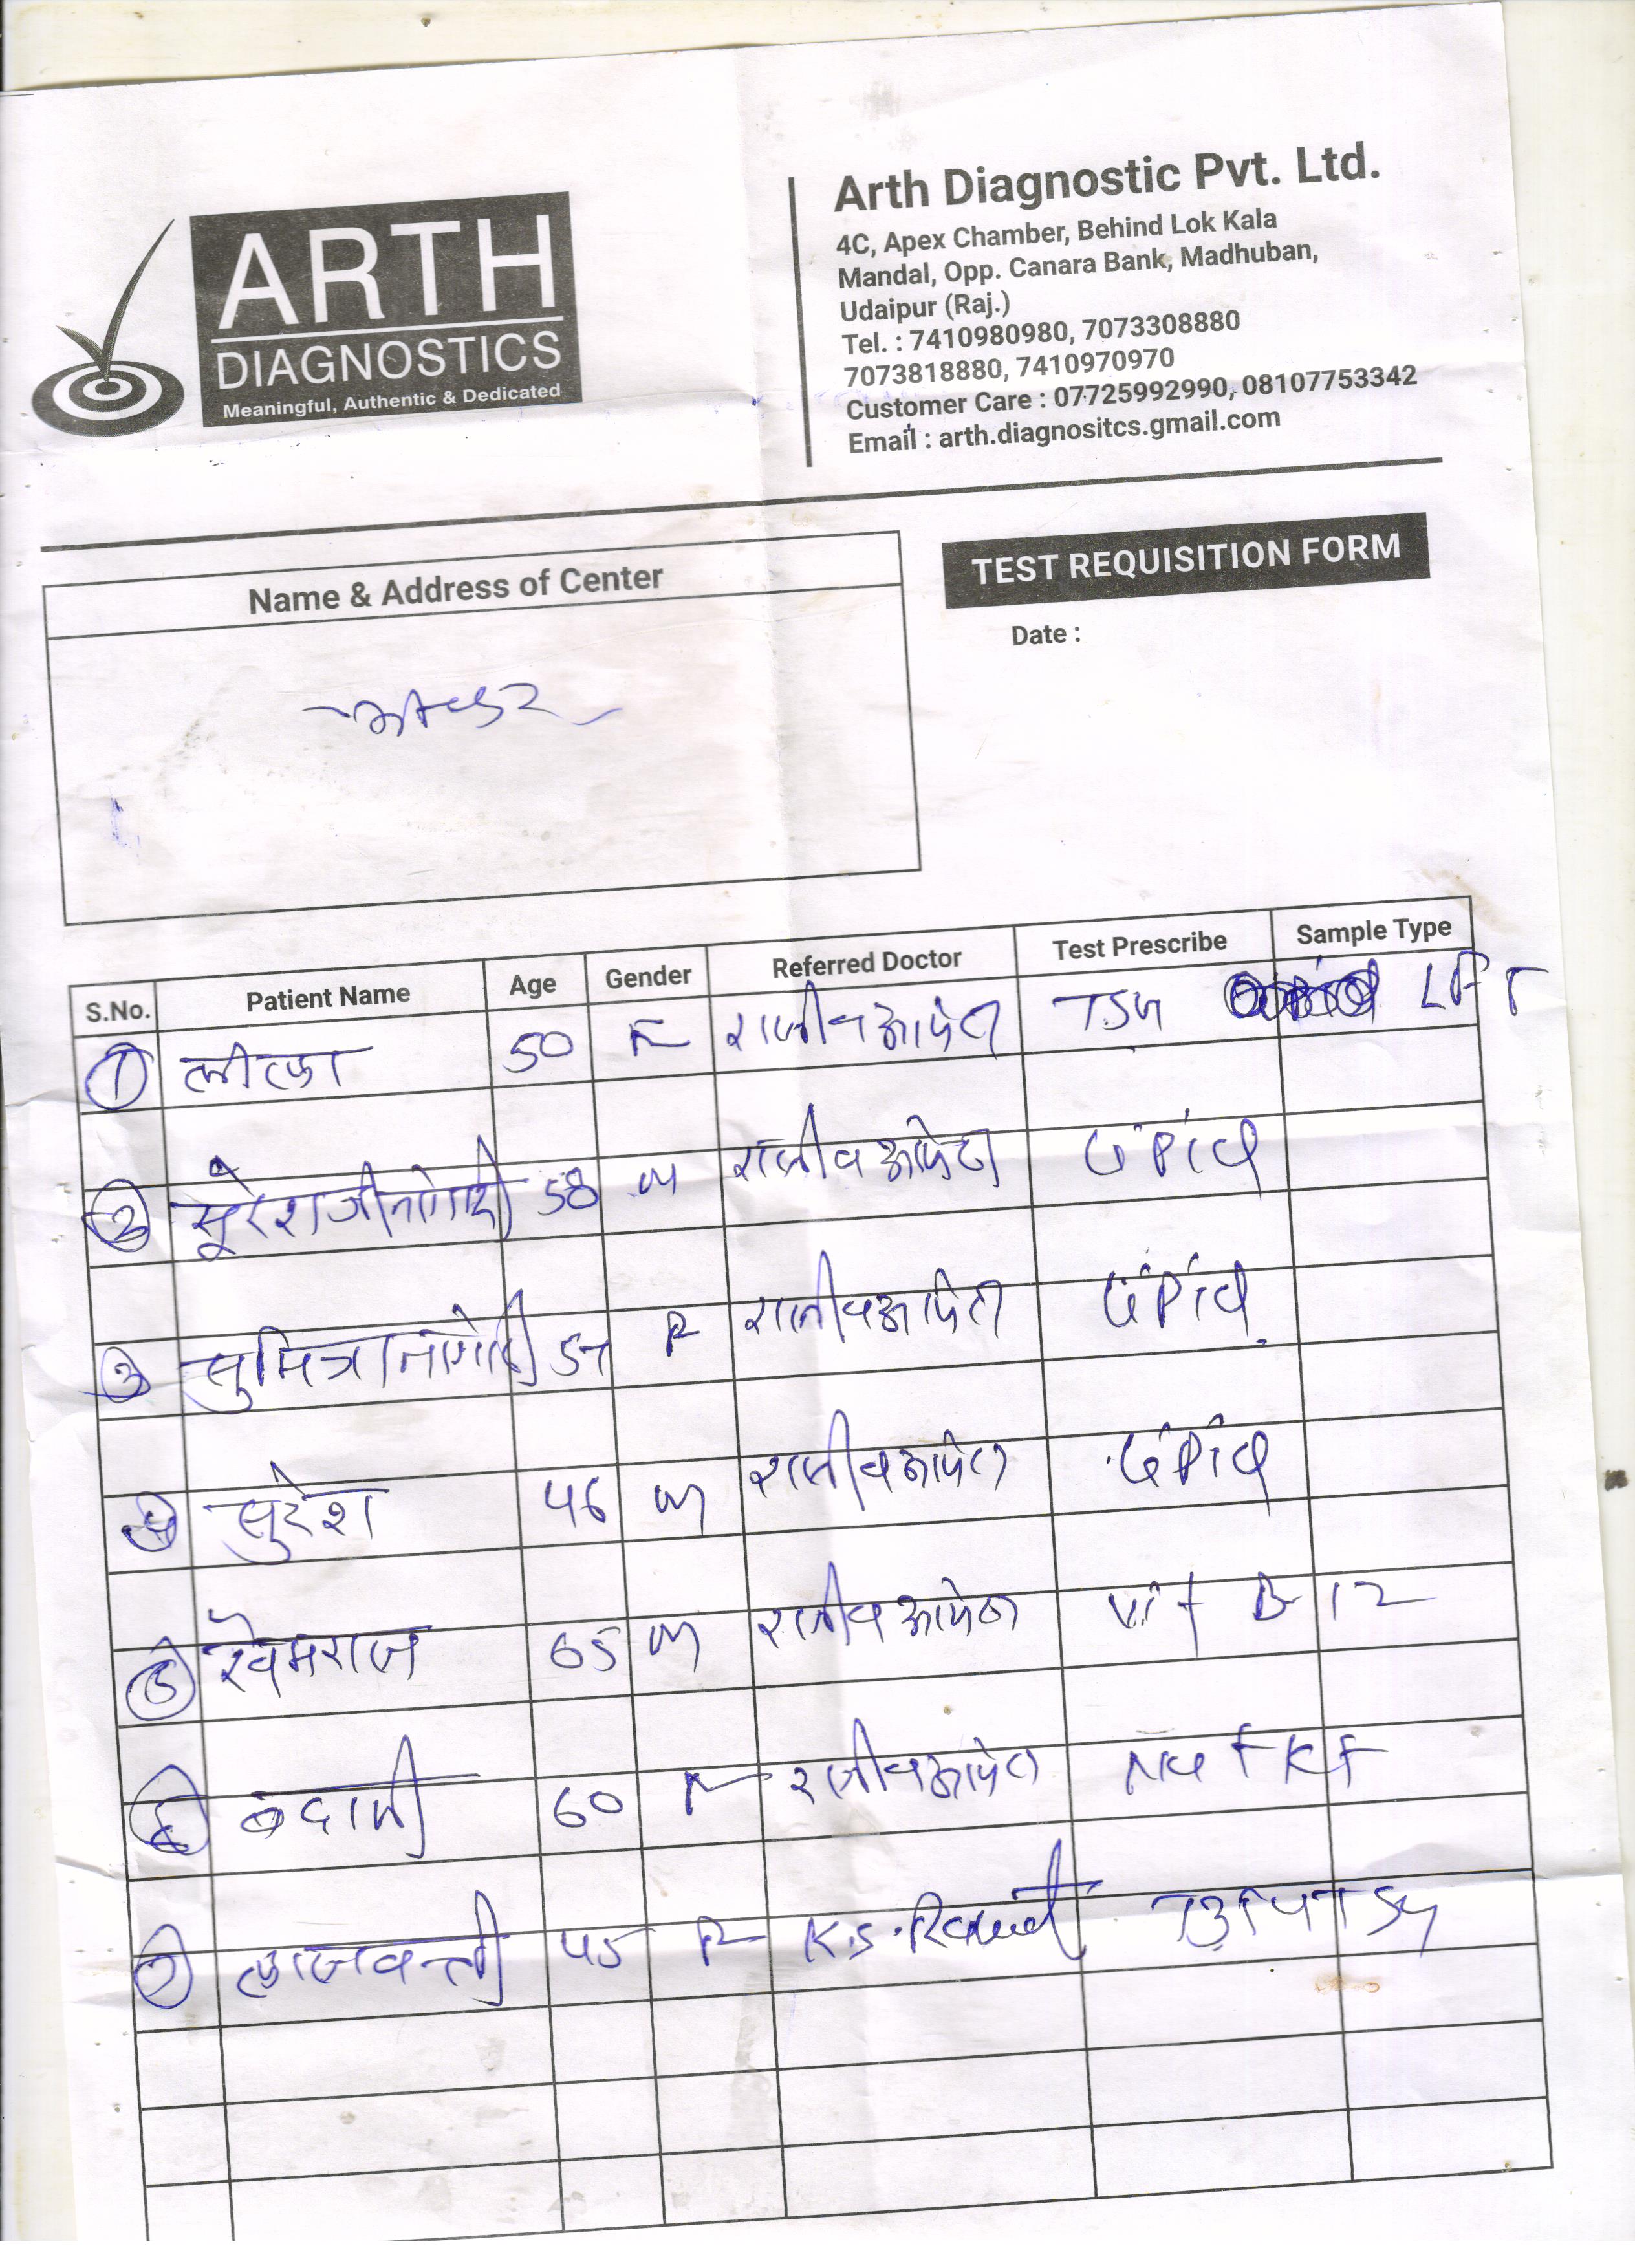 ARTH
DIAGNOSTICS
Meaningful, Authentic & Dedicated
Arth Diagnostic Pvt. Ltd.
4C, Apex Chamber, Behind Lok Kala
Mandal, Opp. Canara Bank, Madhuban,
Udaipur (Raj.)
Tel. : 7410980980, 7073308880
7073818880, 7410970970
Customer Care : 07725992990, 08107753342
Email : arth.diagnositcs.gmail.com
Name & Address of Center
TEST REQUISITION FORM
Date :
S.No. Patient Name Age Gender Referred Doctor Test Prescribe Sample Type
1 50 F राजीव TSH LFT
2 सूरेशजी नागोरी 58 M राजीव
3 सुमित्रा नागोरी 54 F राजीव
4 सुरेश 46 M राजीव
5 खेमराज 65 M राजीव Vit B-12
6 बदामी 60 F राजीव
7 लाजवन्ती 45 F K.S.